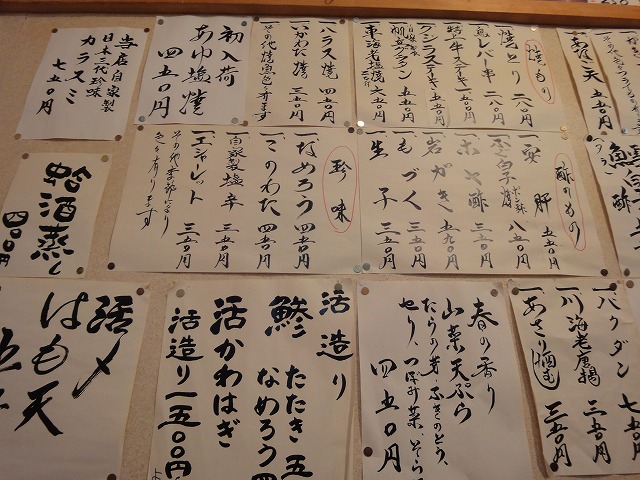 あなご天
五五〇円
焼もの
一、焼とり 二八〇円
一、鳥レバー串 二八〇円
一、特牛ステーキ
一、クジラステーキ 五五〇円
一、帆立グラタン 五五〇円
一、車海老塩焼 六五〇円
一、ハラス焼 四五〇円
一、いかわた焼 三五〇円
その他焼魚色々有ます
初入荷
あゆ塩焼
四五〇円
当店自家製
日本三代珍味
カラスミ
七五〇円
酢のもの
一、安肝 五五〇円
八五〇円
一、ホヤ酢 三五〇円
一、岩がき 五九〇円
一、もづく 三五〇円
一、生子 三五〇円
珍味
一、なめろう 四五〇円
一、このわた 四五〇円
一、自家製塩辛 三五〇円
一、エシャレット 三五〇円
その他季節により
色々有ります
蛤酒蒸し
四〇〇円
一、バクダン 七五
一、川海老唐揚 三五〇円
一、あさり酒むし 三五〇円
春の香り
山菜天ぷら
たらの芽、ふきのとう、
せり、つぼみ菜、
四五〇円
活造り
鯵 たたき 五
なめろう 四
活かわはぎ
活造り 一五〇〇円
活〆
はも天